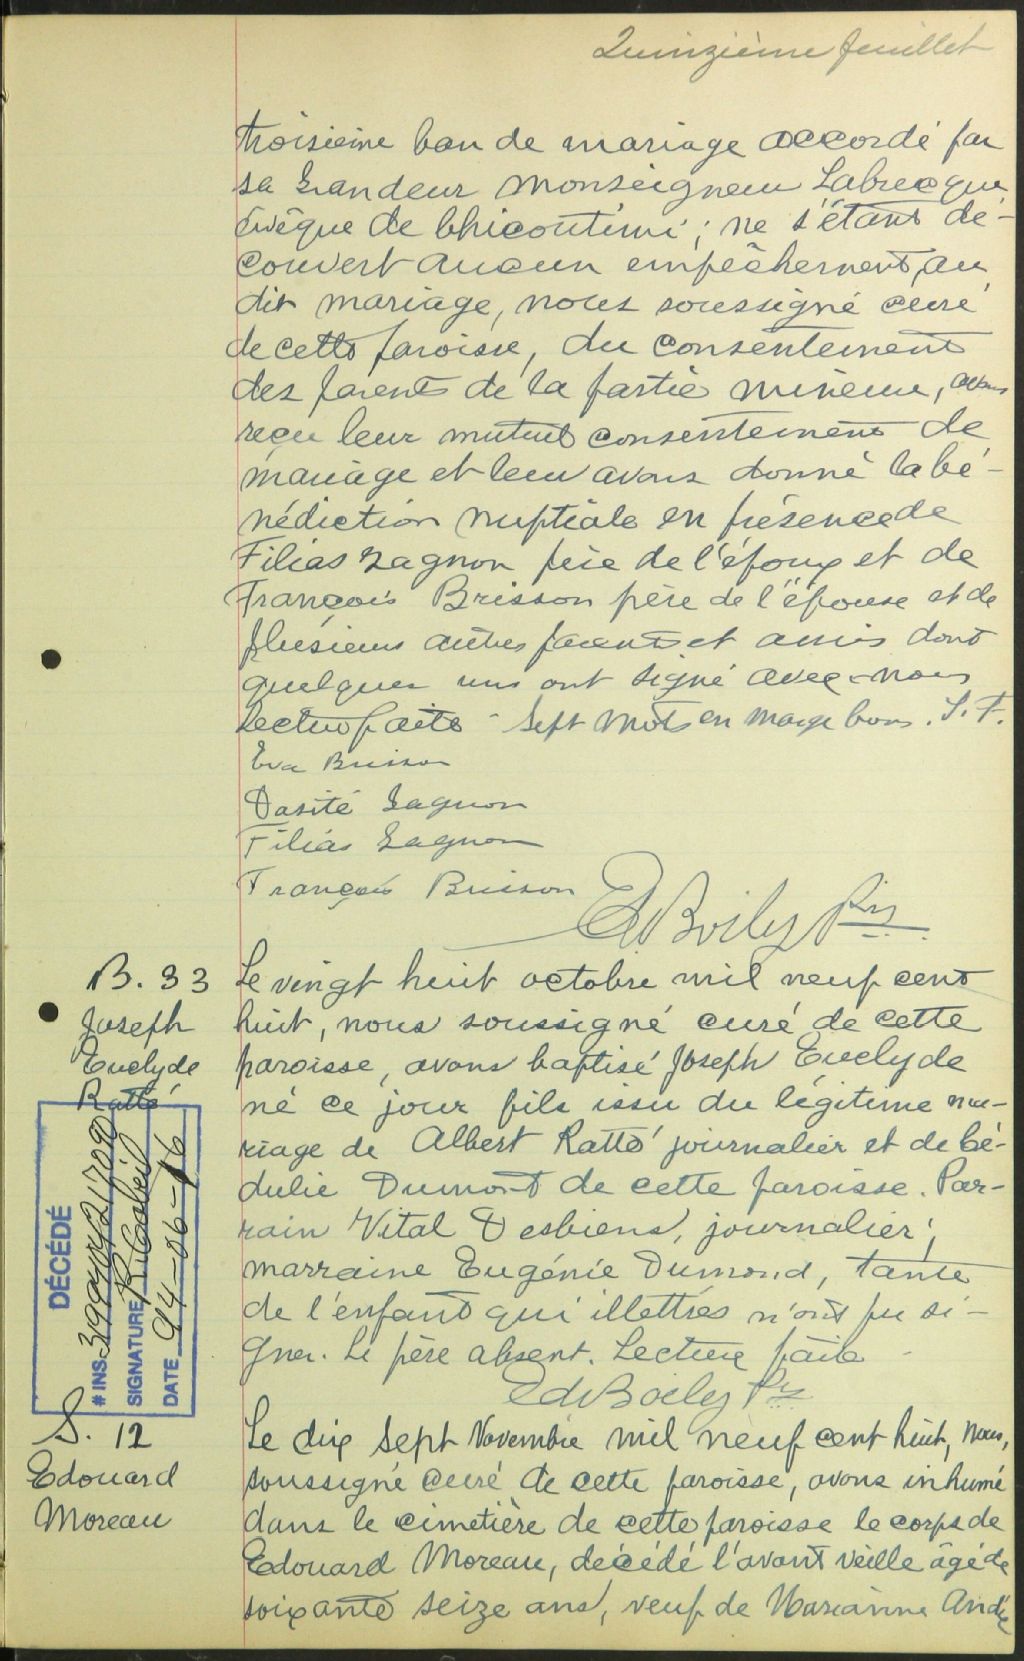 Quinzième feuillet
troisième ban de mariage accordé par
sa Grandeur Monseigneur Labrecque
évêque de Chicoutimi; ne s'étant dé-
couvert aucun empêchement, au
dit mariage, nous soussigné curé
de cette paroisse, du consentement
des parents de la partie mineure, avons
reçu leur mutuel consentement de
mariage et leur avons donné la bé-
nédiction nuptiale en présence de
Filias Gagnon père de l'époux et de
François Brisson père de l'épouse et de
plusieurs autres parents et amis dont
quelques uns ont signé avec nous
Lecture faite - Sept mots en marge bons. S. F.
Eva Brisson
Dasité Gagnon
Filias Gagnon
François Brisson
Ed Boily Ptre
B. 33
Joseph
Euclyde
Ratté
Le vingt huit octobre mil neuf cent
huit, nous soussigné curé de cette
paroisse, avons baptisé Joseph Euclyde
né ce jour fils issu du légitime ma-
riage de Albert Ratté journalier et de Cé-
dulie Dumont de cette paroisse. Par-
rain Vital Desbiens, journalier;
marraine Eugénie Dumond, tante
de l'enfant qui illettrés n'ont pu si-
gner. Le père absent. Lecture faite -
Ed Boily Ptre
DÉCÉDÉ
# INS.
SIGNATURE
DATE 94-06-16
S. 12
Edouard
Moreau
Le dix sept Novembre mil neuf cent huit, Nous,
soussigné curé de cette paroisse, avons inhumé
dans le cimetière de cette paroisse le corps de
Edouard Moreau, décédé l'avant veille âgé de
soixante seize ans, veuf de Marianne